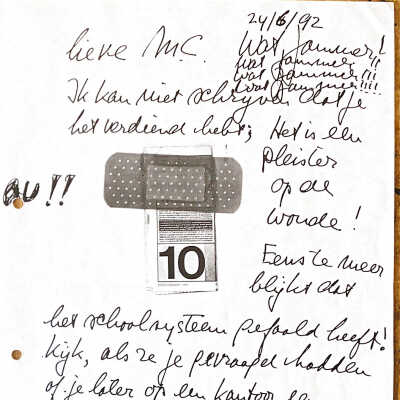 24/6/92
lieve M.C. Wat jammer!
Wat jammer!!
Wat jammer!!!
Wat jammer!!!!
Ik kan niet schrijven dat je
het verdiend hebt; Het is een
pleister
op de
wonde!
au!!
10
Eens te meer
blijkt dat
het schoolsysteem gefaald heeft!
Kijk, als ze je gevraagd hadden
of je later op een kantoor